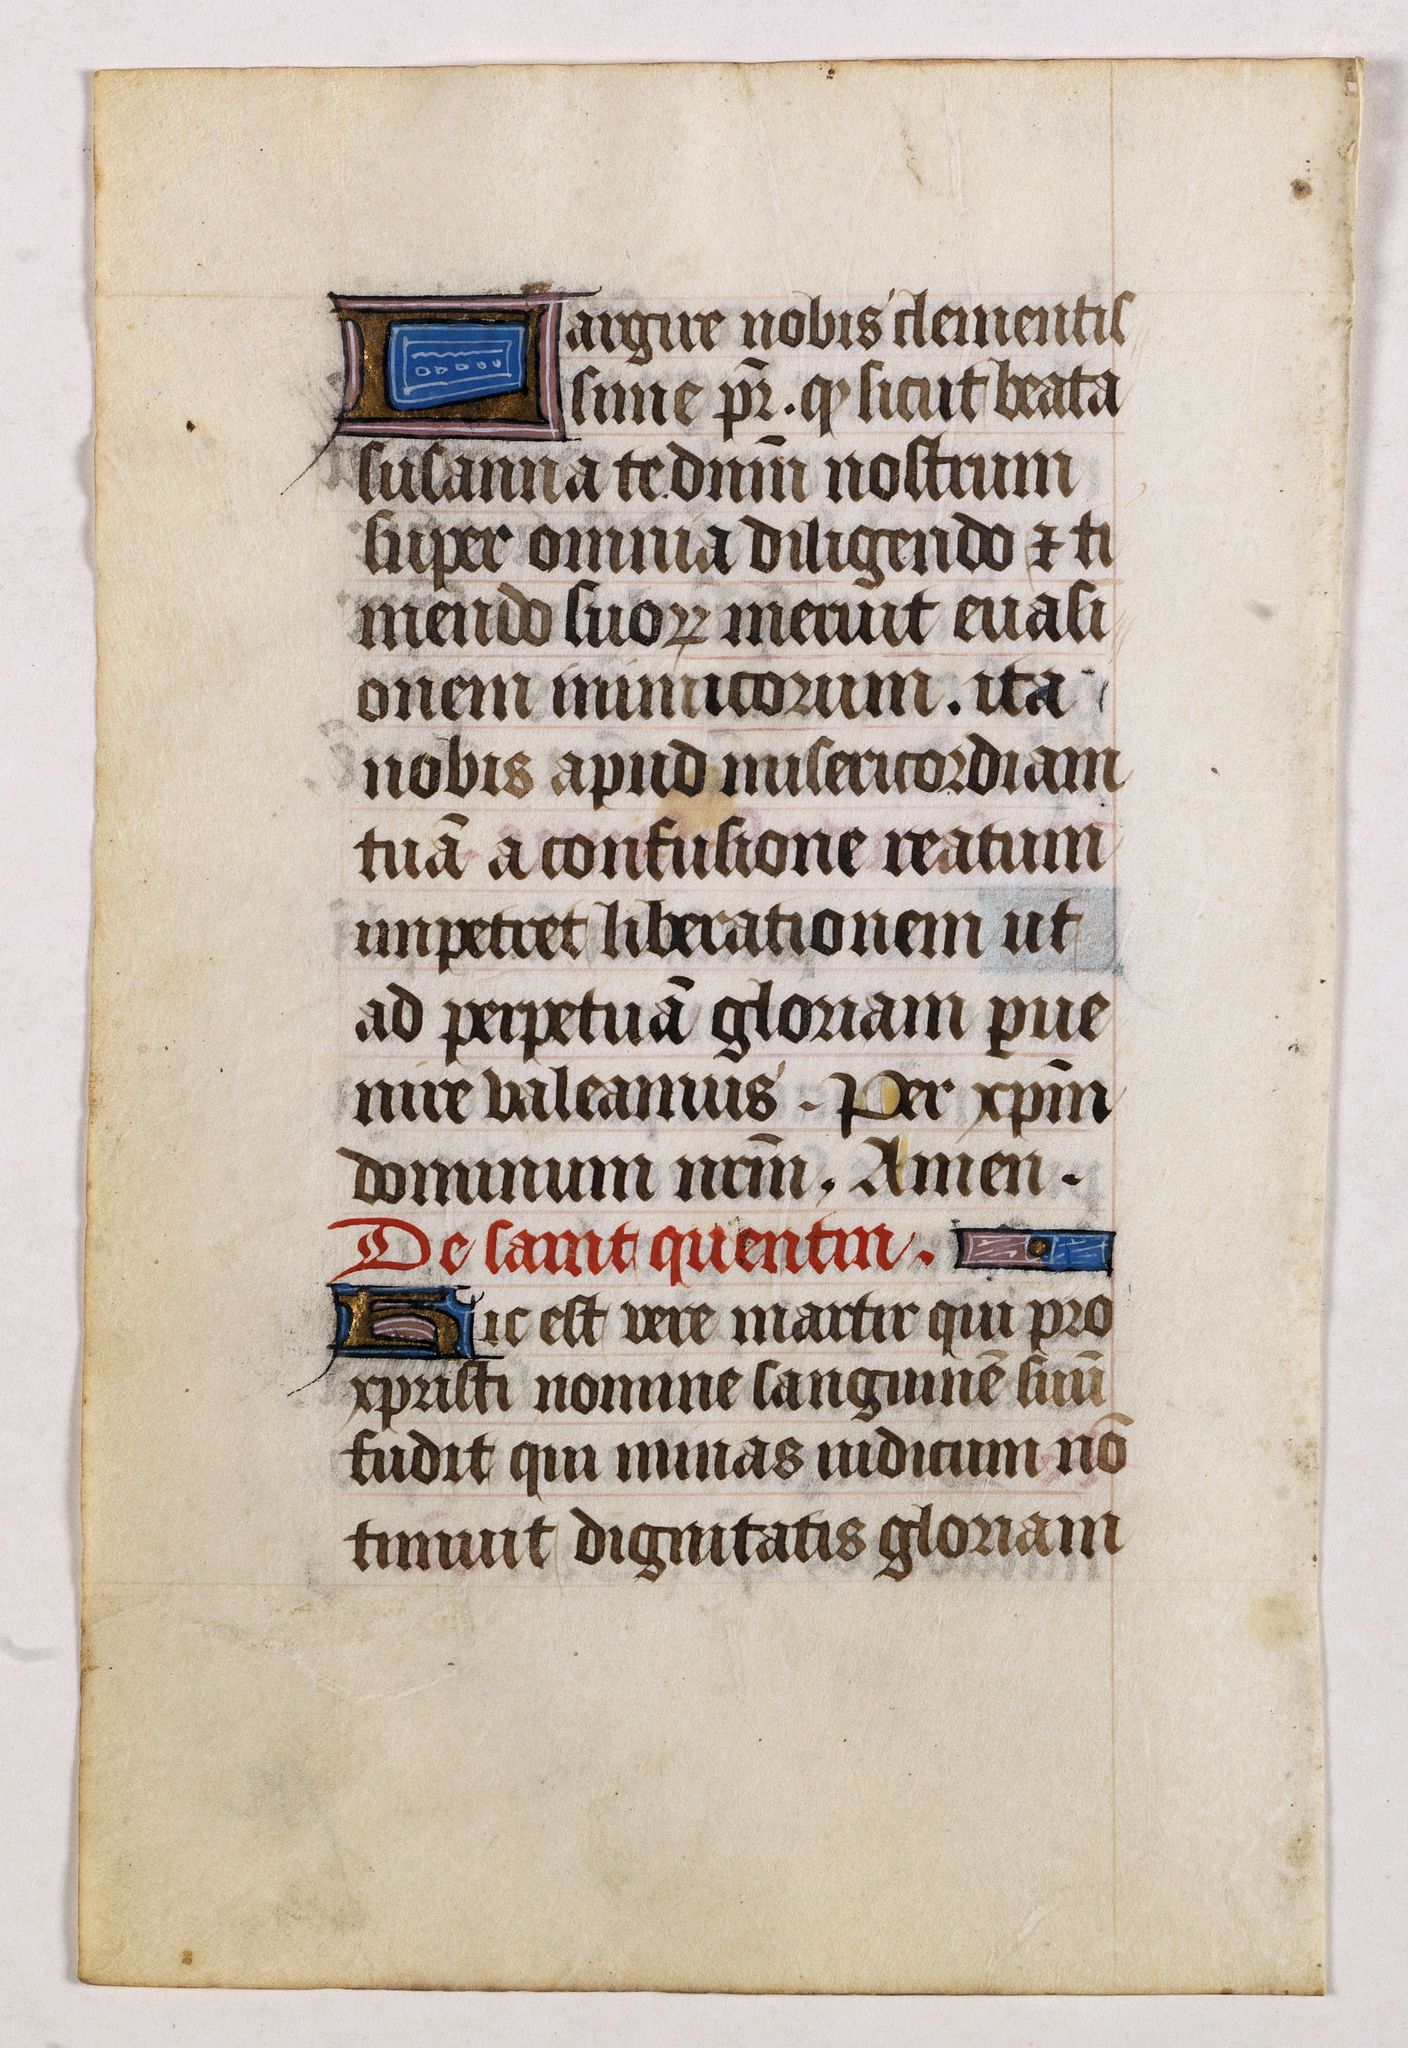 Largire nobis clementis
sime pr̄. qͥ sicut beata
susanna te dn̄m nostrum
super omnia diligendo ⁊ ti
mendo suoꝝ meruit euasi
onem inimicorum. ita
nobis apud misericordiam
tuā a confusione reatum
impetret liberationem ut
ad perpetuā gloriam ꝑue
nire valeamus. Per xp̄m
dominum nr̄m. Amen.
De saint quentin.
Hic est vere martir qui pro
xpristi nomine sanguinē suū
fudit qui minas iudicum nō
timuit dignitatis gloriam